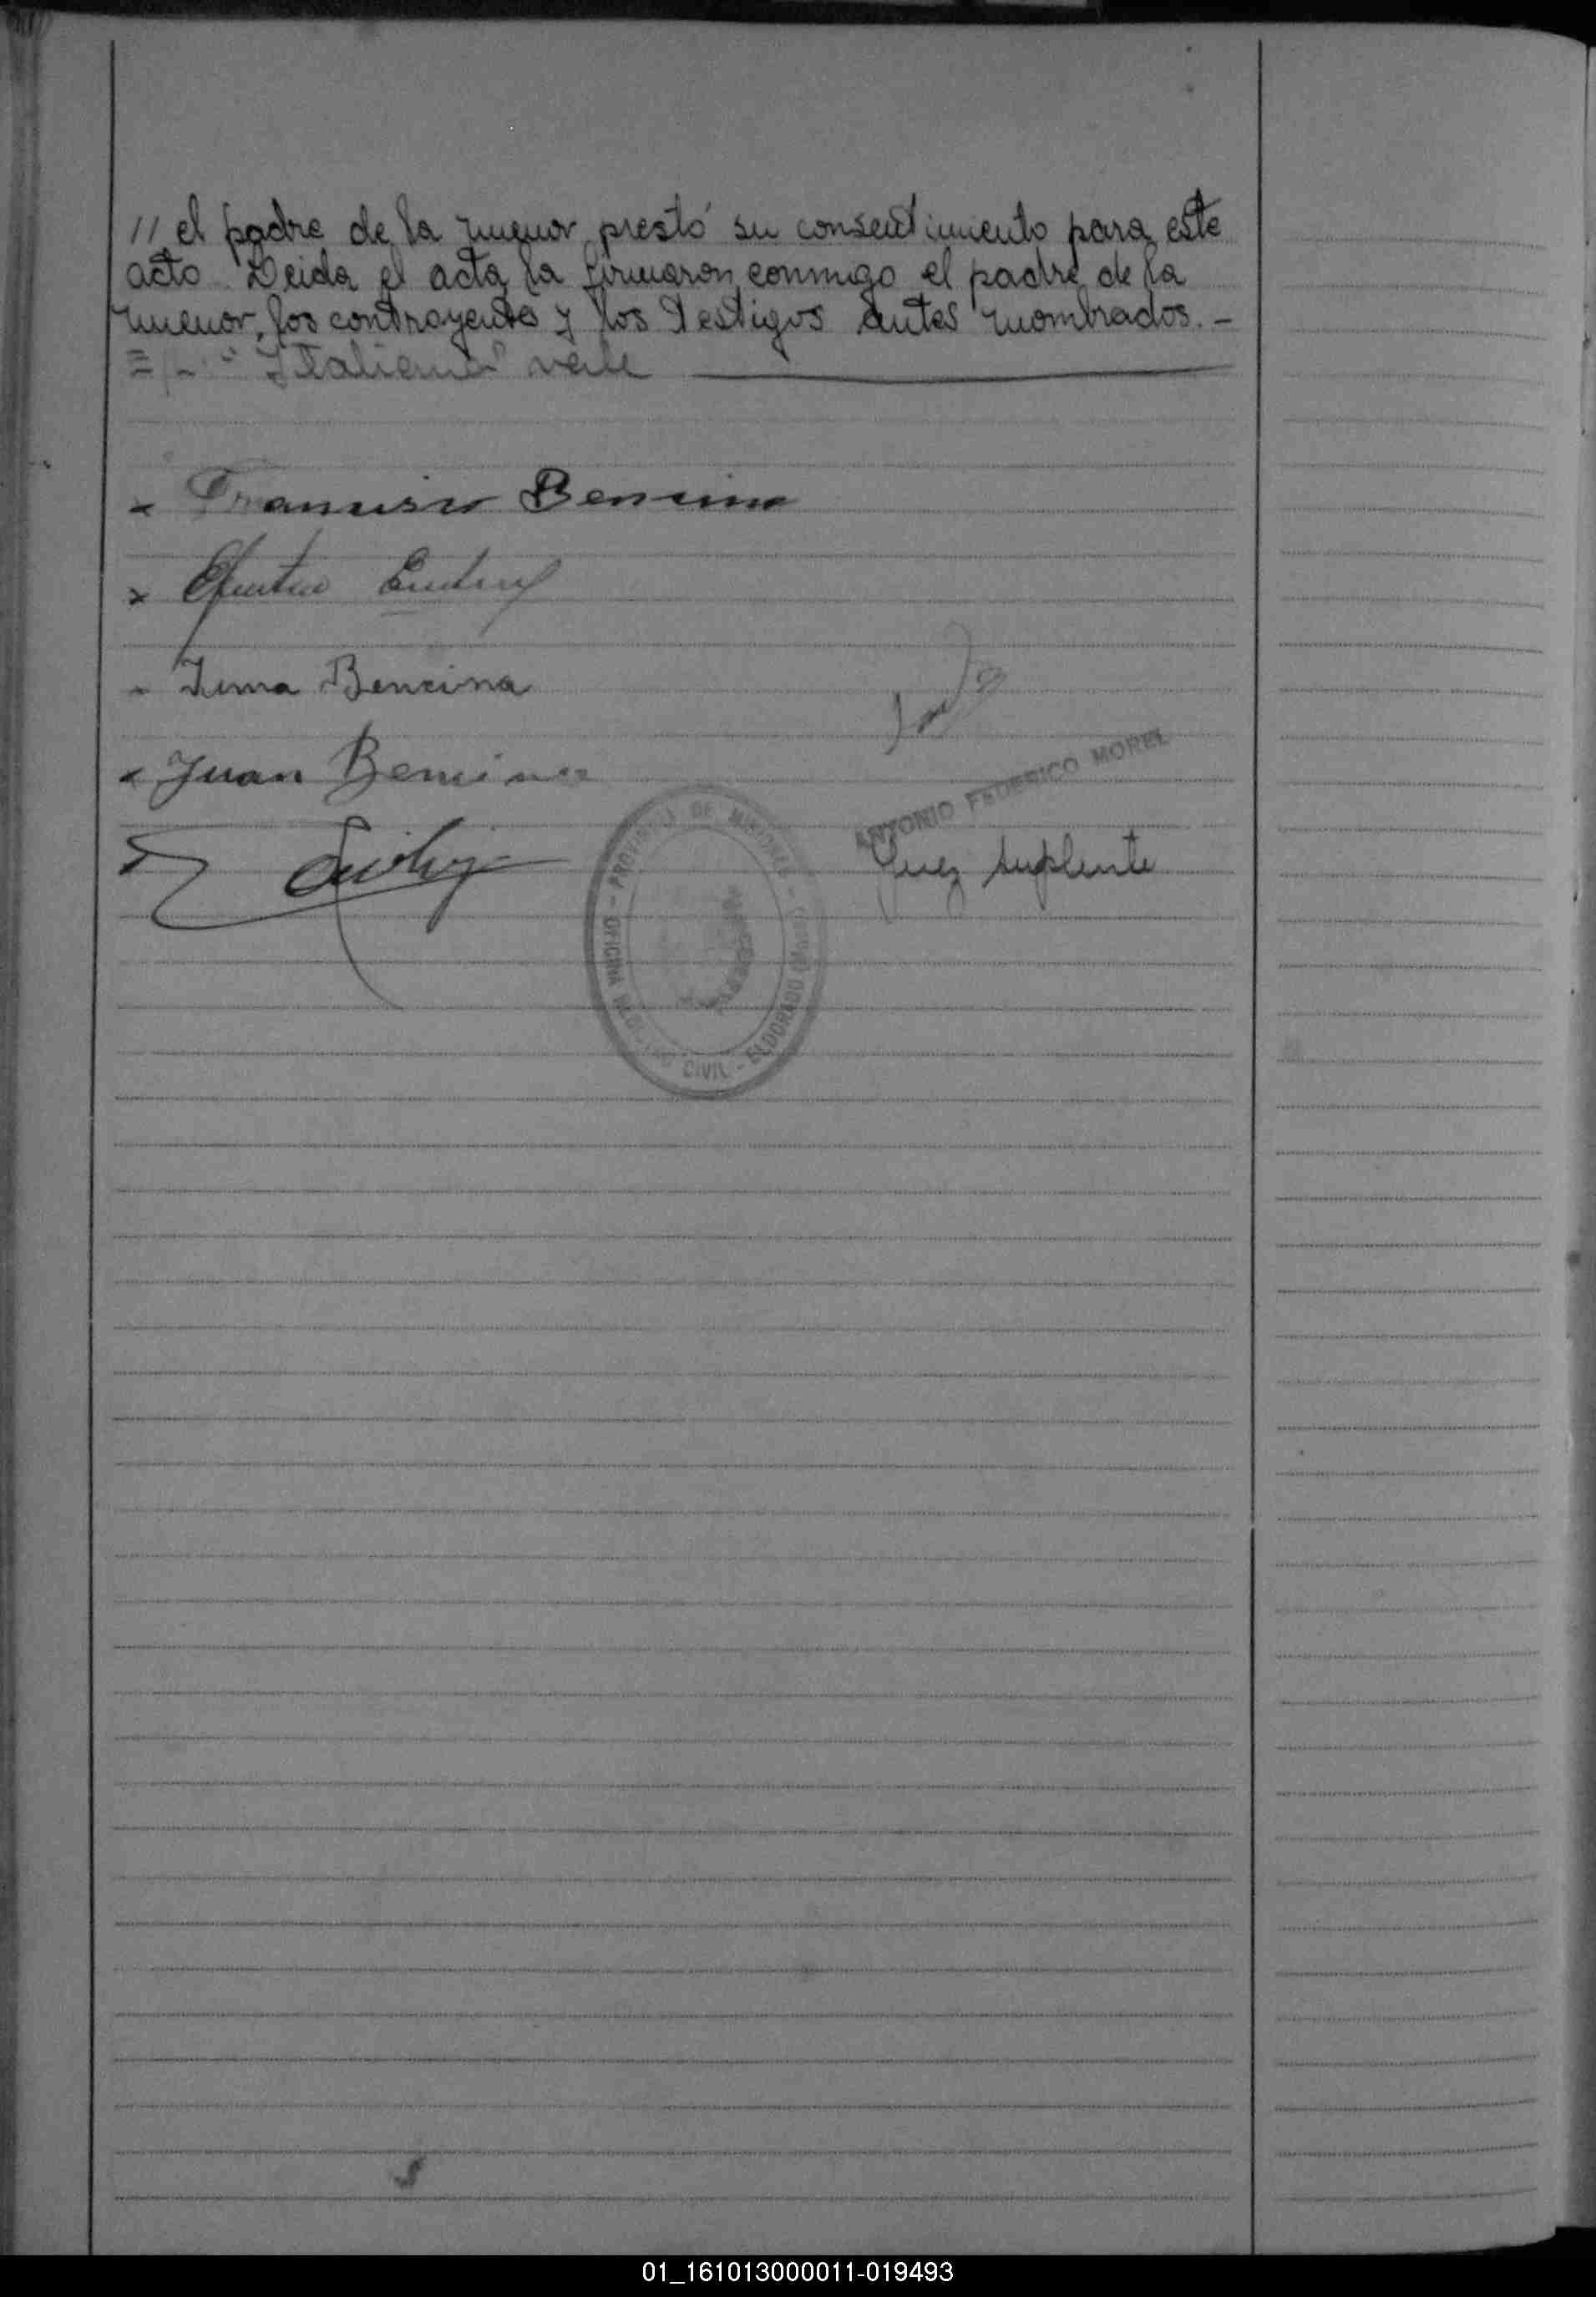 // el padre de la menor prestó su consentimiento para este
acto. Leida el acta la firmaron conmigo el padre de la
menor, los contrayentes y los testigos antes nombrados. -
"Italiana" vale
Francisco Bencina
Irma Bencina
Juan Bencina
ANTONIO FEDERICO MOREL
Juez Suplente
PROVINCIA DE MISIONES - OFICINA REGISTRO CIVIL - ELDORADO (Mnes)
01_161013000011-019493